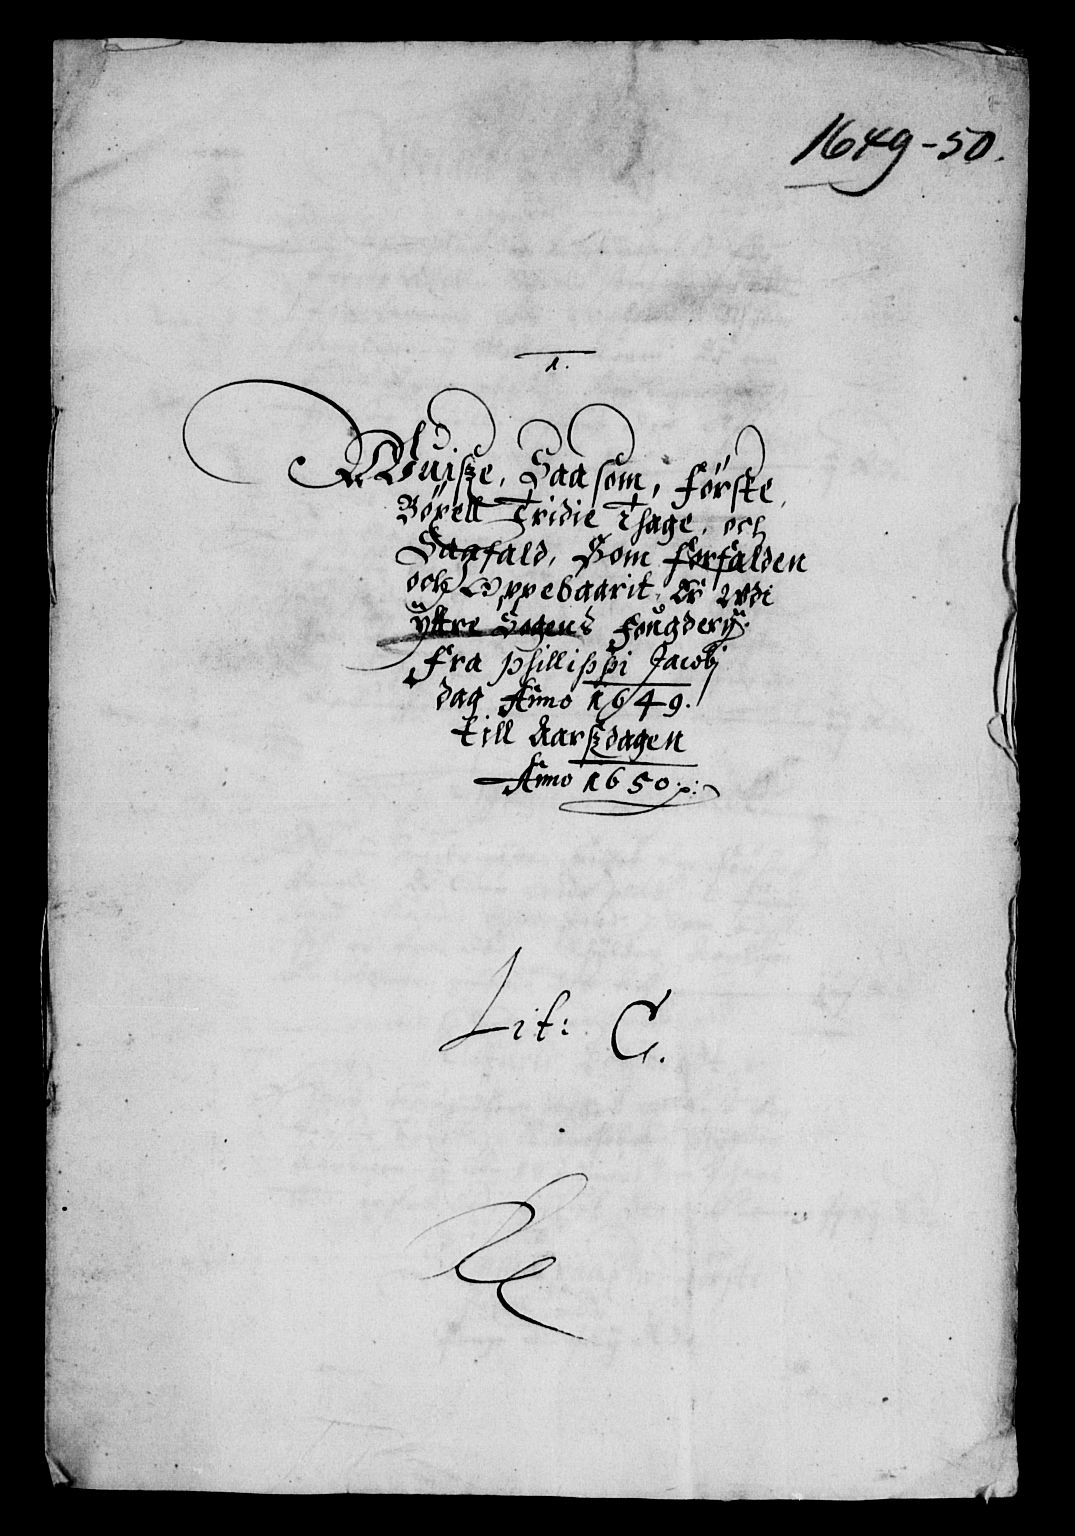 1649-50.
1.
Wuisze, Saasom, Førske
Bøxell Tridie Thage, och
Sagfald, Som forfalden
och Oppebaarit, Er Udi
ÿttre Sogens Fougderÿ
Fra Phillippi Jacobj
dag Anno 1649.
till Aarszdagen
Anno 1650.
Lit: C.